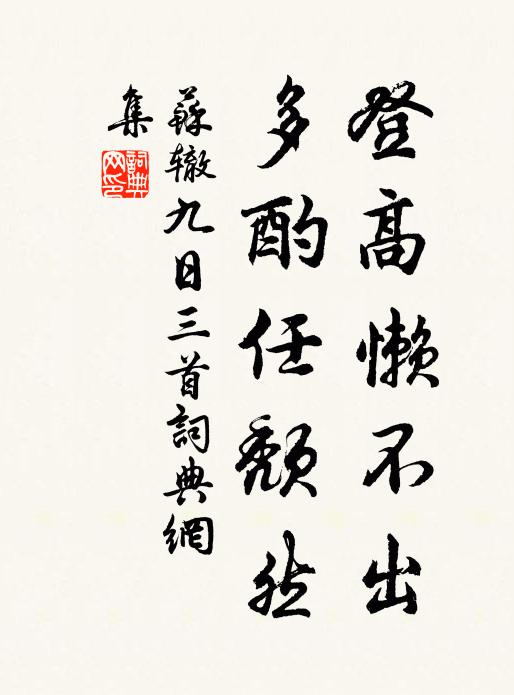 登高懶不出
多酌任頹然
蘇辙九日三首詞典網
集
詞典
网印